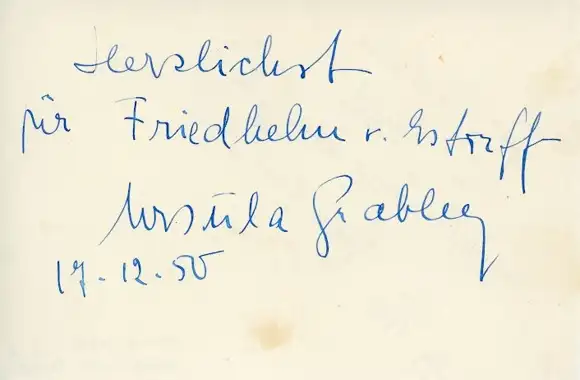 Herzlichst
für Friedhelm v. Estorff
Ursula Grabley
17.12.50